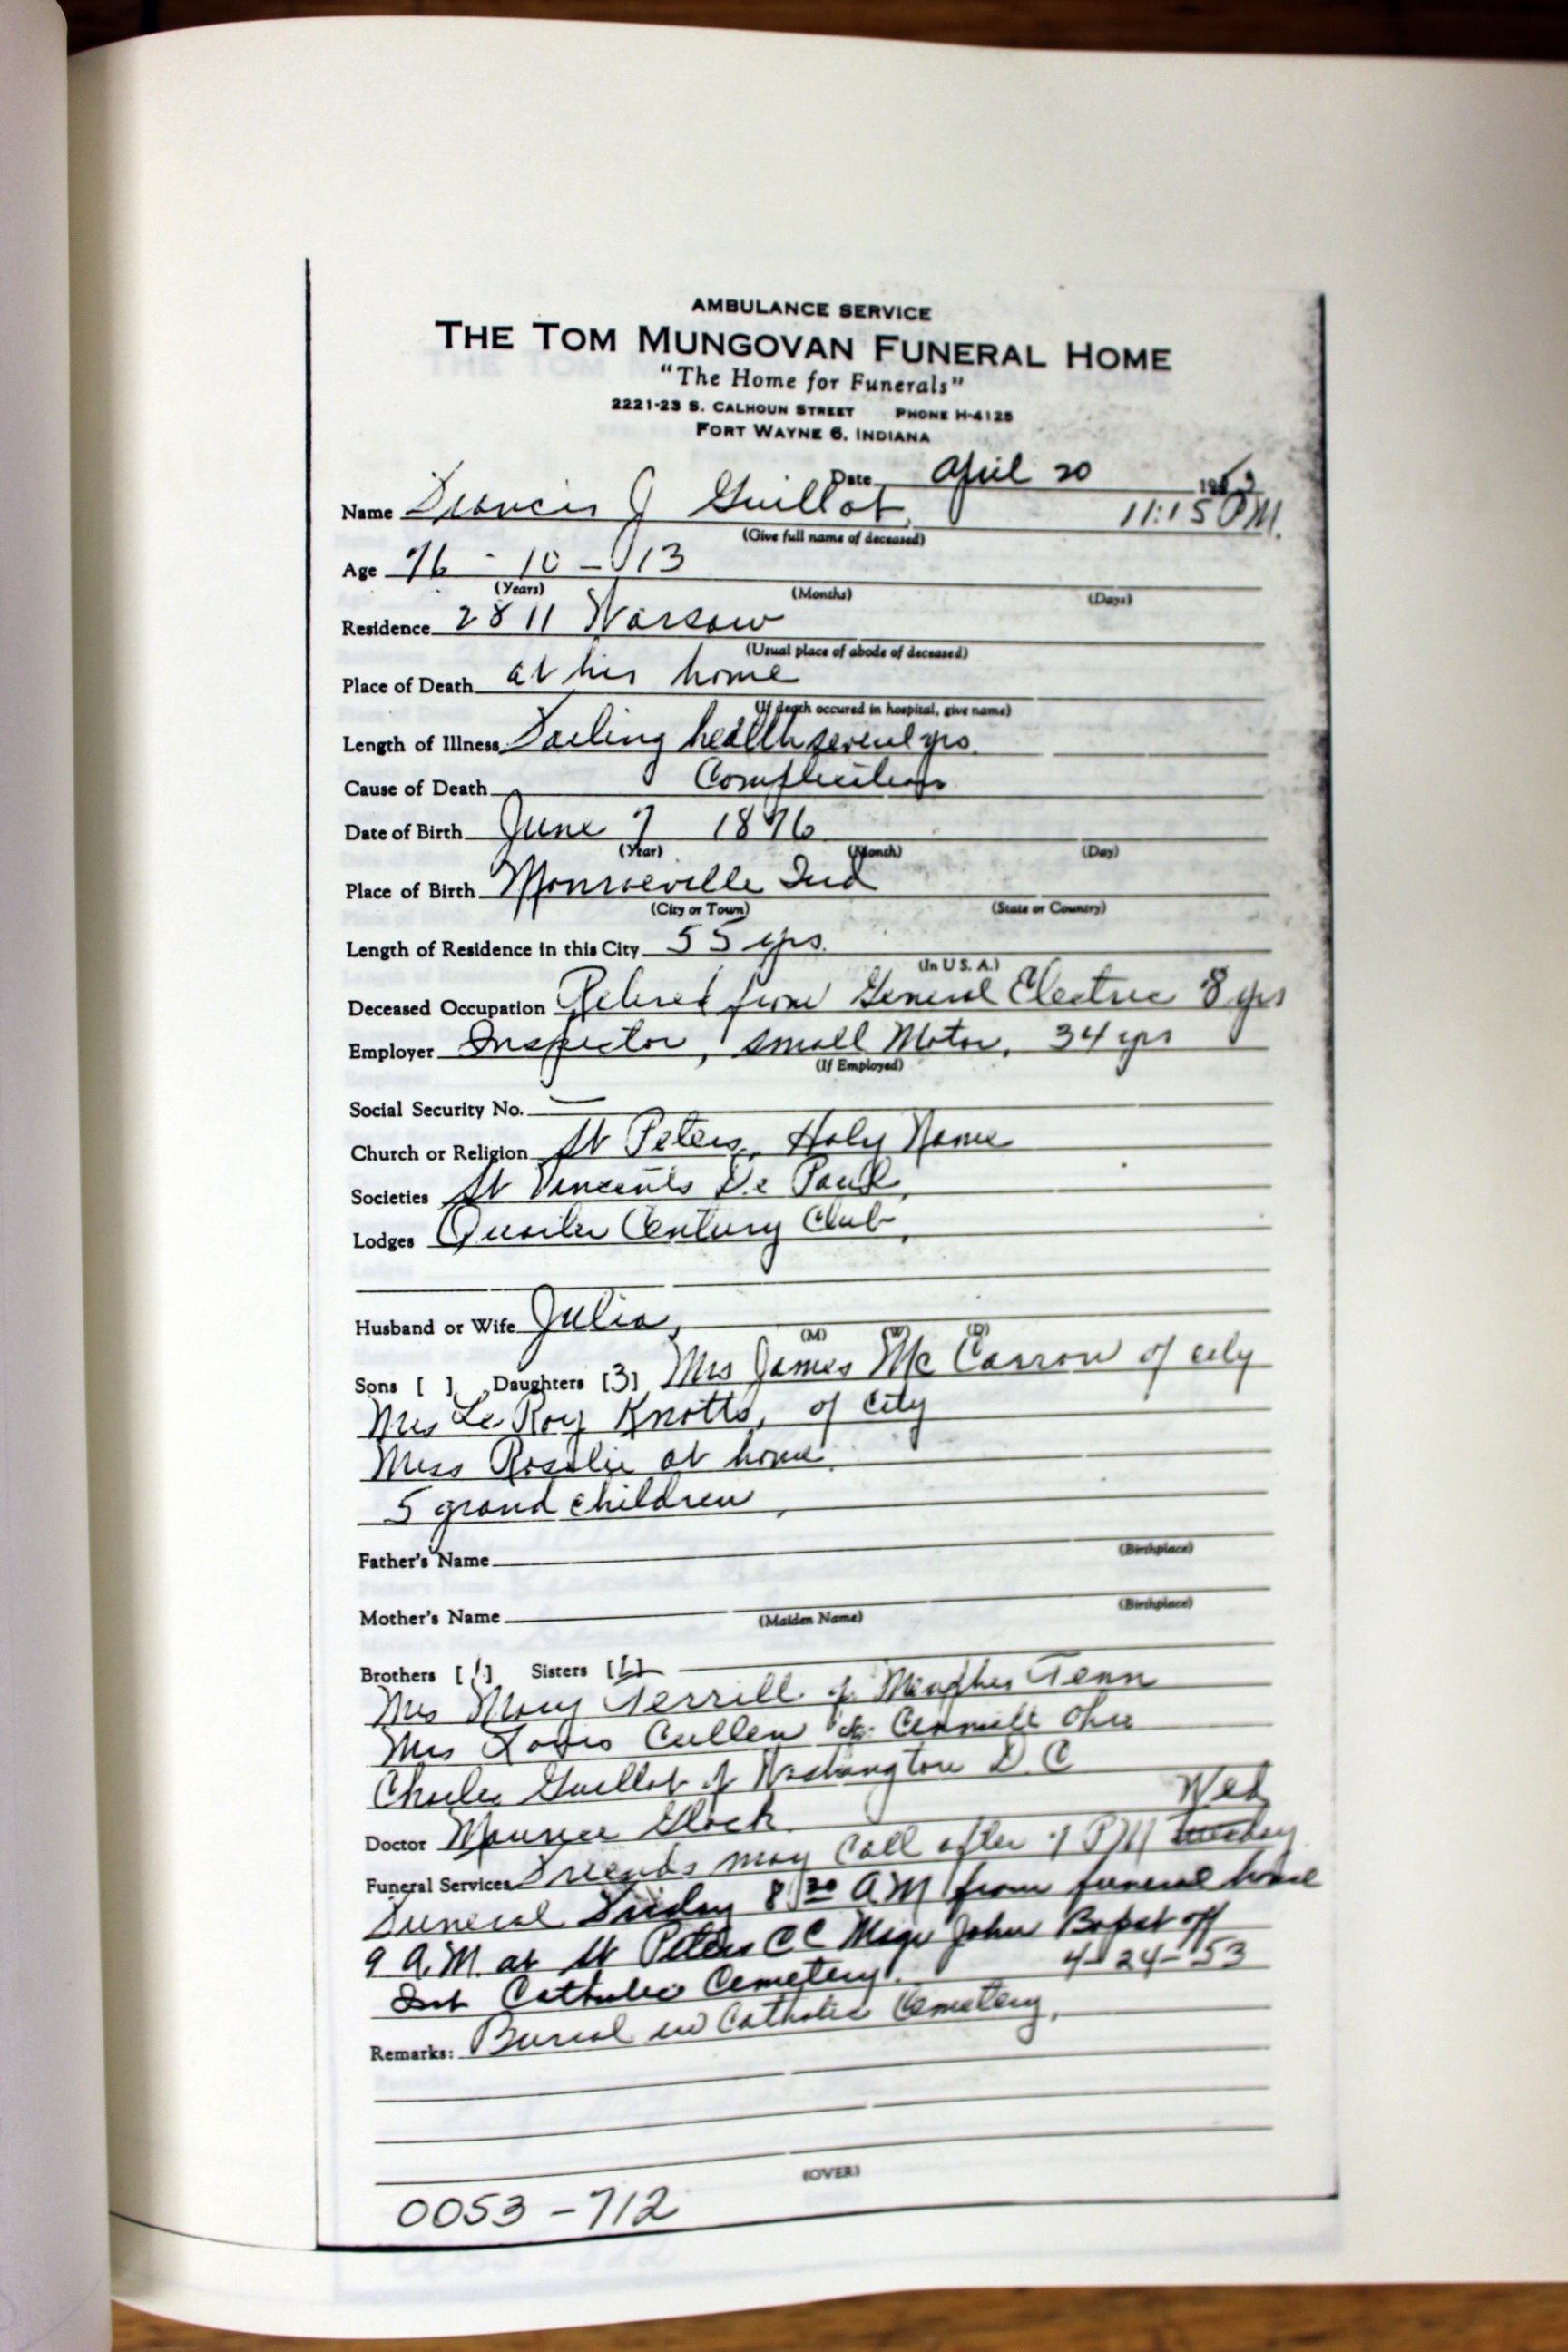 AMBULANCE SERVICE
THE TOM MUNGOVAN FUNERAL HOME
"The Home for Funerals"
2221-23 S. CALHOUN STREET PHONE H-4125
FORT WAYNE 6, INDIANA
Date April 20 1953
Name Francis J Guillot, 11:15 PM.
(Give full name of deceased)
Age 76 - 10 - 13
(Years) (Months) (Days)
Residence 2811 Warsaw
(Usual place of abode of deceased)
Place of Death at his home
(If death occured in hospital, give name)
Length of Illness Failing health several yrs.
Cause of Death Complications
Date of Birth June 7 1876
(Year) (Month) (Day)
Place of Birth Monroeville Ind
(City or Town) (State or Country)
Length of Residence in this City 55 yrs.
(In U.S.A.)
Deceased Occupation Retired from General Electric 8 yrs
Employer Inspector, small Motor, 34 yrs
(If Employed)
Social Security No. —
Church or Religion St Peters, Holy Name
Societies St Vincents De Paul,
Lodges Quarter Century Club,
Husband or Wife Julia,
(M) (W) (D)
Sons [ ] Daughters [3] Mrs James Mc Carron of city
Mrs Le Roy Knotts, of city
Miss Rosalie at home.
5 grand children,
Father's Name
(Birthplace)
Mother's Name
(Maiden Name) (Birthplace)
Brothers [1] Sisters []
Mrs Mary Terrill of Memphis Tenn
Mrs Louis Cullen Ohio
Charles Guillot of Washington D.C
Doctor Maurice Glock. Wed
Funeral Services Friends may call after 7 PM
Funeral Friday 8:30 AM from funeral home
9 A.M. at St Peters CC Msgr John Bapst off
Int Catholic Cemetery. 4-24-53
Remarks: Burial in Catholic Cemetery.
(OVER)
0053-712